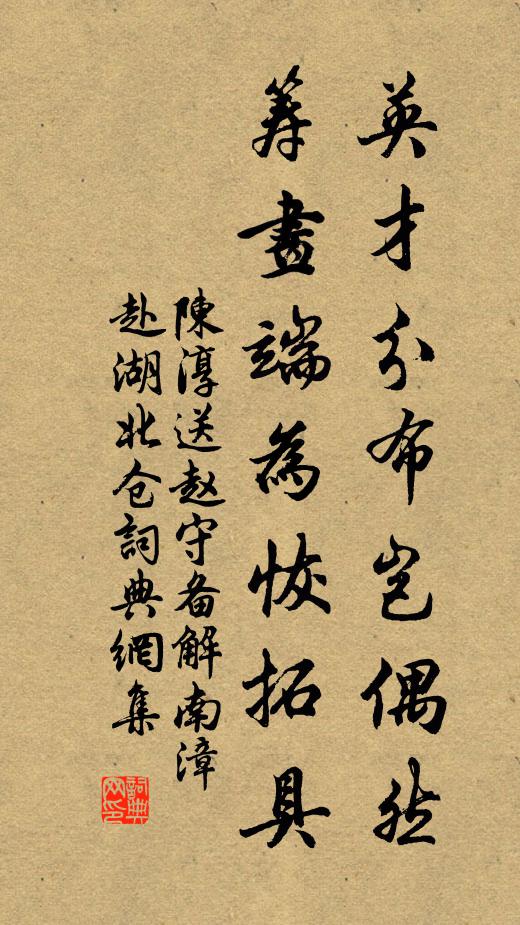 英才分布岂偶然
筹畫端為恢拓具
陳淳送赵守备解南漳
赴湖北仓詞典網集
詞典网印